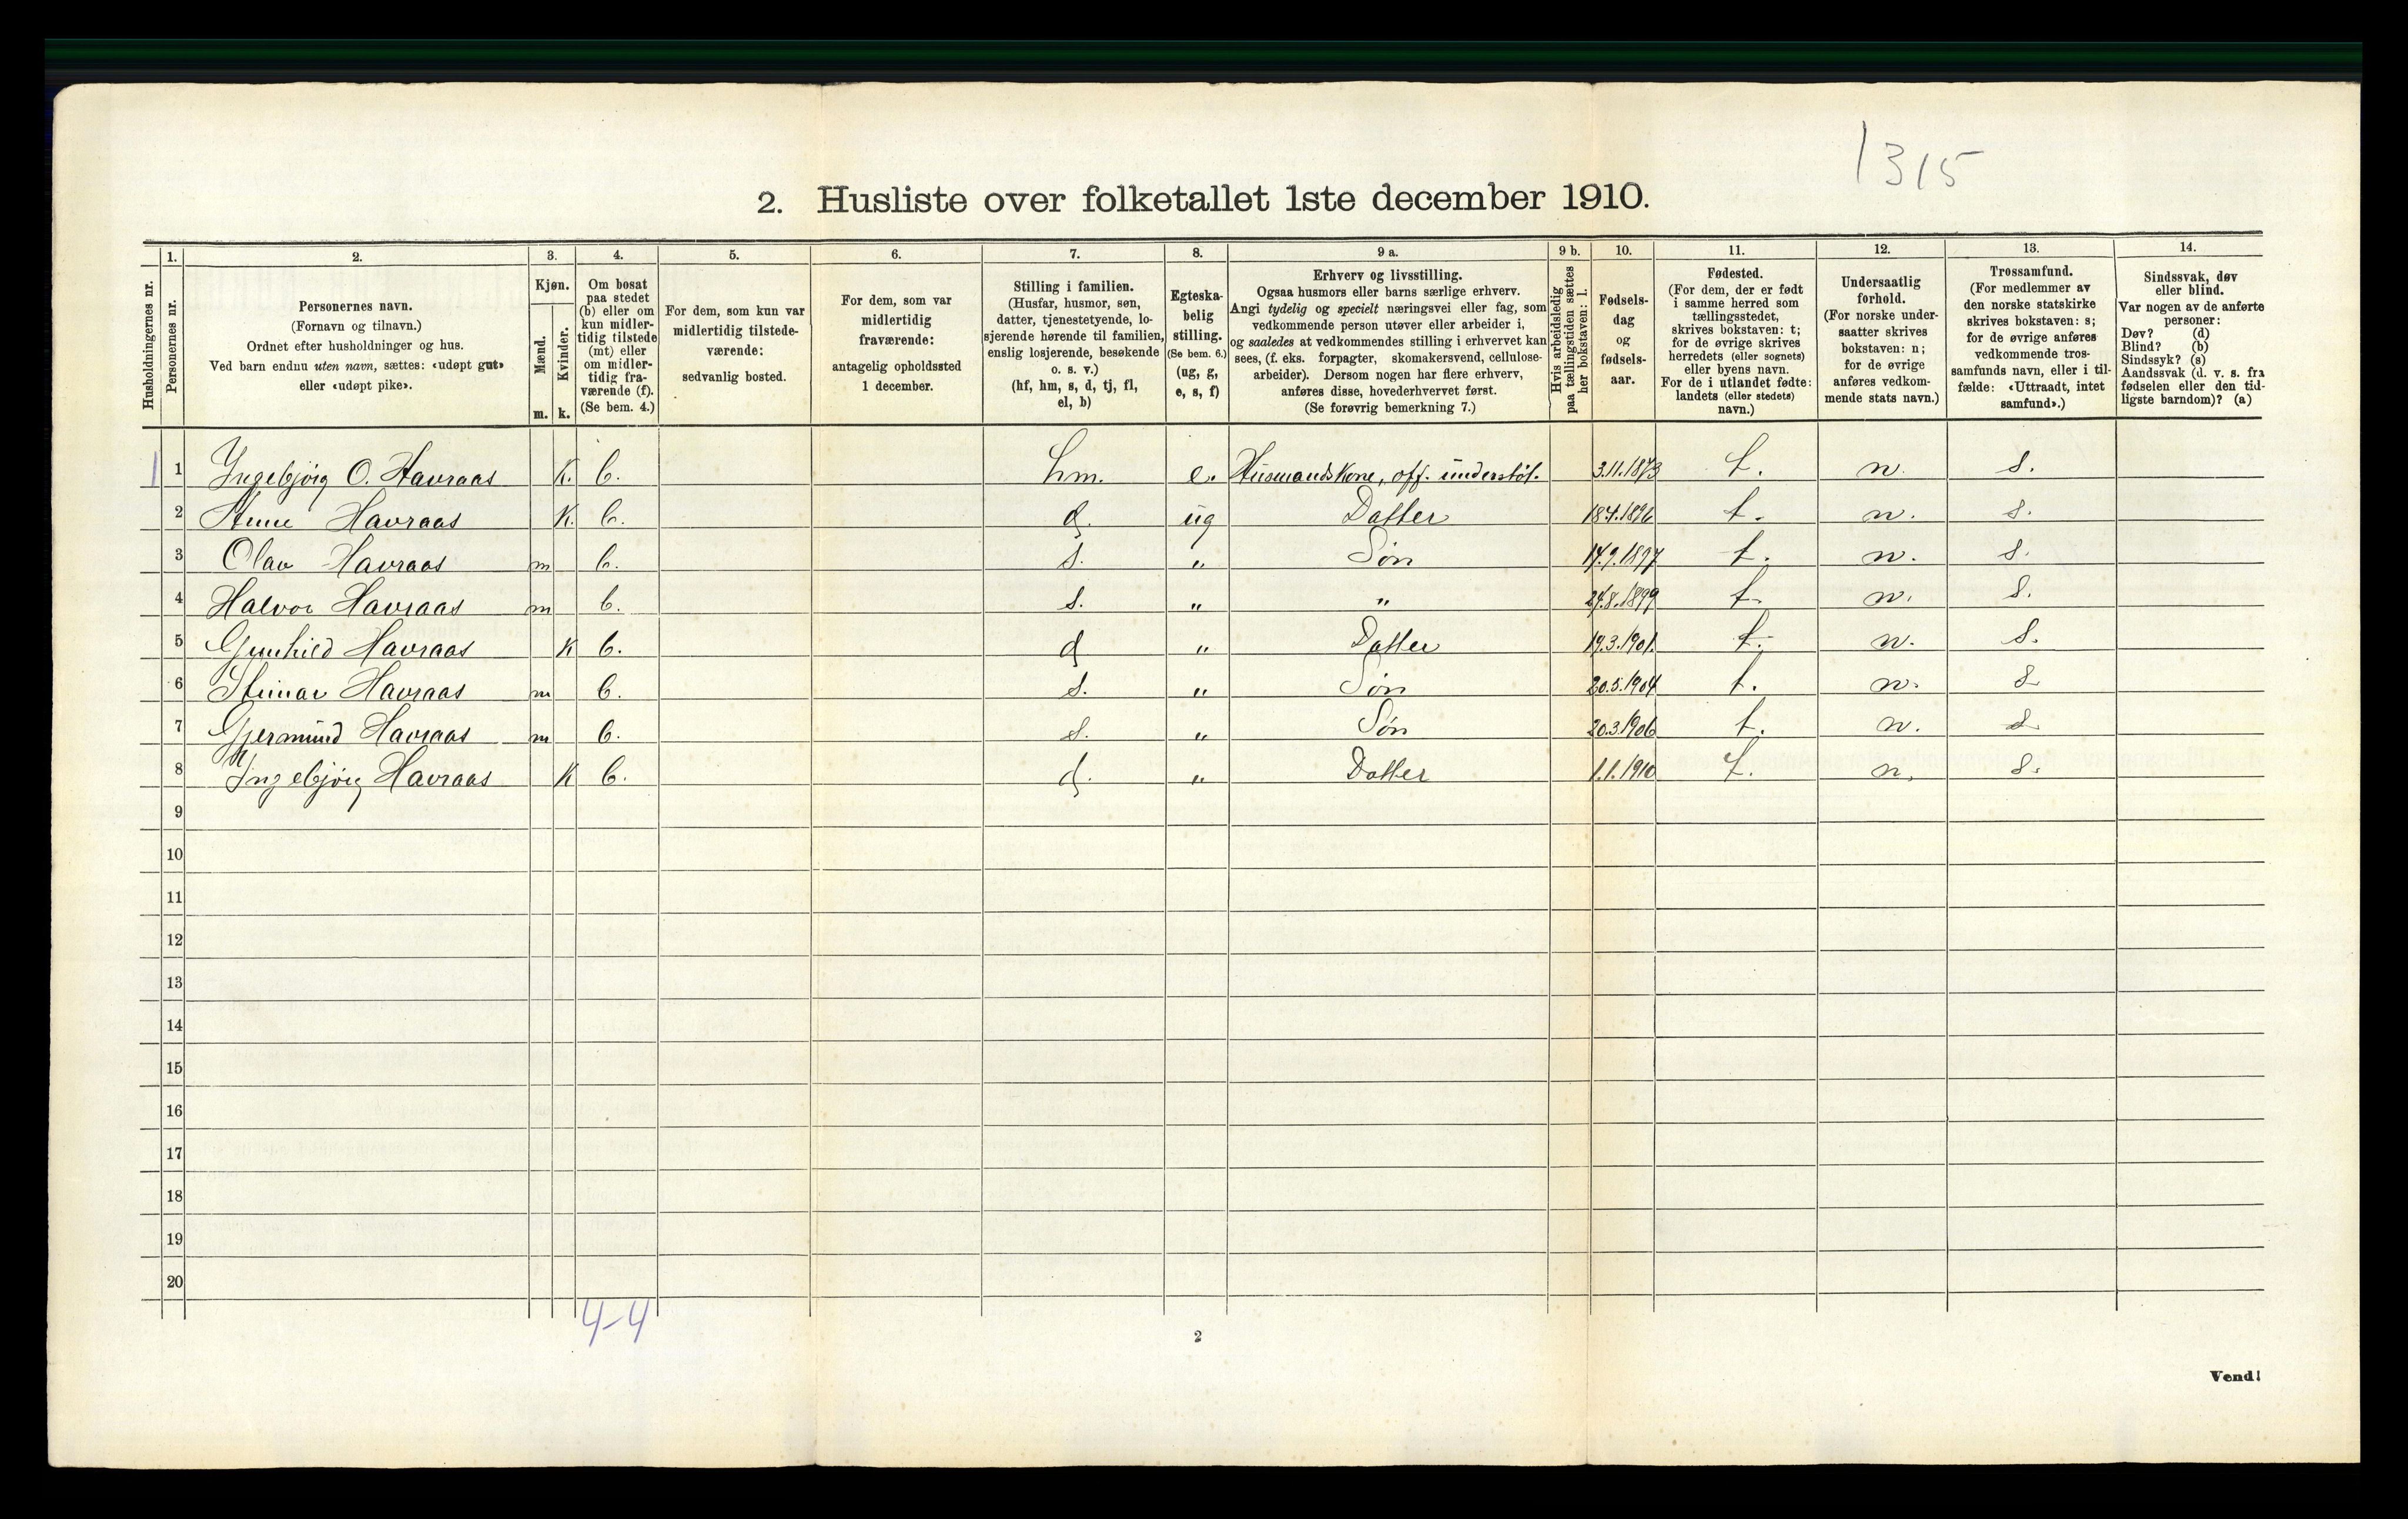 1315
2. Husliste over folketallet 1ste december 1910.
1. 2. 3. 4. 5. 6. 7. 8. 9 a. 9 b. 10. 11. 12. 13. 14.
Husholdningernes nr.
Personernes nr.
Personernes navn.
(Fornavn og tilnavn.)
Ordnet efter husholdninger og hus.
Ved barn endnu uten navn, sættes: «udøpt gut»
eller «udøpt pike».
Kjøn.
Mænd.
Kvinder.
m. k.
Om bosat
paa stedet
(b) eller om
kun midler-
tidig tilstede
(mt) eller
om midler-
tidig fra-
værende (f).
(Se bem. 4.)
For dem, som kun var
midlertidig tilstede-
værende:
sedvanlig bosted.
For dem, som var
midlertidig
fraværende:
antagelig opholdssted
1 december.
Stilling i familien.
(Husfar, husmor, søn,
datter, tjenestetyende, lo-
sjerende hørende til familien,
enslig losjerende, besøkende
o. s. v.)
(hf, hm, s, d, tj, fl,
el, b)
Egteska-
belig
stilling.
(Se bem. 6.)
(ug, g,
e, s, f)
Erhverv og livsstilling.
Ogsaa husmors eller barns særlige erhverv.
Angi tydelig og specielt næringsvei eller fag, som
vedkommende person utøver eller arbeider i,
og saaledes at vedkommendes stilling i erhvervet kan
sees, (f. eks. forpagter, skomakersvend, cellulose-
arbeider). Dersom nogen har flere erhverv,
anføres disse, hovederhvervet først.
(Se forøvrig bemerkning 7.)
Hvis arbeidsledig
paa tællingstiden sættes
her bokstaven: l.
Fødsels-
dag
og
fødsels-
aar.
Fødested.
(For dem, der er født
i samme herred som
tællingsstedet,
skrives bokstaven: t;
for de øvrige skrives
herredets (eller sognets)
eller byens navn.
For de i utlandet fødte:
landets (eller stedets)
navn.)
Undersaatlig
forhold.
(For norske under-
saatter skrives
bokstaven: n;
for de øvrige
anføres vedkom-
mende stats navn.)
Trossamfund.
(For medlemmer av
den norske statskirke
skrives bokstaven: s;
for de øvrige anføres
vedkommende tros-
samfunds navn, eller i til-
fælde: «Uttraadt, intet
samfund».)
Sindssvak, døv
eller blind.
Var nogen av de anførte
personer:
Døv? (d)
Blind? (b)
Sindssyk? (s)
Aandssvak (d. v. s. fra
fødselen eller den tid-
ligste barndom)? (a)
1 1 Ingebjörg O. Havraas K. b. hm. e. Husmandskone, off. understöt. 3.11.1873 t. n. s.
2 Anne Havraas K. b. d. ug Datter 18.4.1896 t. n. s.
3 Olav Havraas m b. s. " Søn 14.9.1897 t. n. s.
4 Halvor Havraas m b. s. " " 24.8.1899 t. n. s.
5 Gunhild Havraas K b. d " Datter 19.3.1901. t. n. s.
6 Steinar Havraas m b. s. " Søn 20.5.1904 t. n. s
7 Gjermund Havraas m b. s. " Søn 20.3.1906 t. n. s
8 Ingebjörg Havraas K b. d. " Datter 1.1.1910 t. n. s.
9
10
11
12
13
14
15
16
17
18
19
20
4-4
2
Vend!